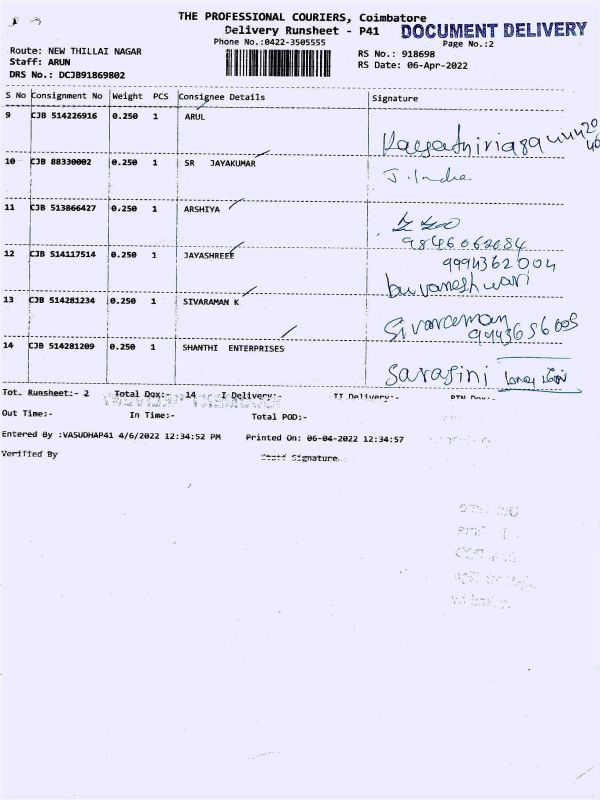 THE PROFESSIONAL COURIERS, Coimbatore
Delivery Runsheet - P41 DOCUMENT DELIVERY
Phone No.:0422-3505555 Page No.:2
Route: NEW THILLAI NAGAR RS No.: 918698
Staff: ARUN RS Date: 06-Apr-2022
DRS No.: DCJB91869802
S No Consignment No Weight PCS Consignee Details Signature
9 CJB 514226916 0.250 1 ARUL
10 CJB 88330002 0.250 1 SR JAYAKUMAR J. Indra
11 CJB 513866427 0.250 1 ARSHIYA
9846062684
12 CJB 514117514 0.250 1 JAYASHREEE 9994362004
buvaneshwari
13 CJB 514281234 0.250 1 SIVARAMAN K Sivaraman
14 CJB 514281209 0.250 1 SHANTHI ENTERPRISES Sarafini
Tot. Runsheet:- 2 Total Dox:- 14 I Delivery:- II Delivery:- RTN Dox:-
Out Time:- In Time:- Total POD:-
Entered By :VASUDHAP41 4/6/2022 12:34:52 PM Printed On: 06-04-2022 12:34:57
Verified By Staff Signature